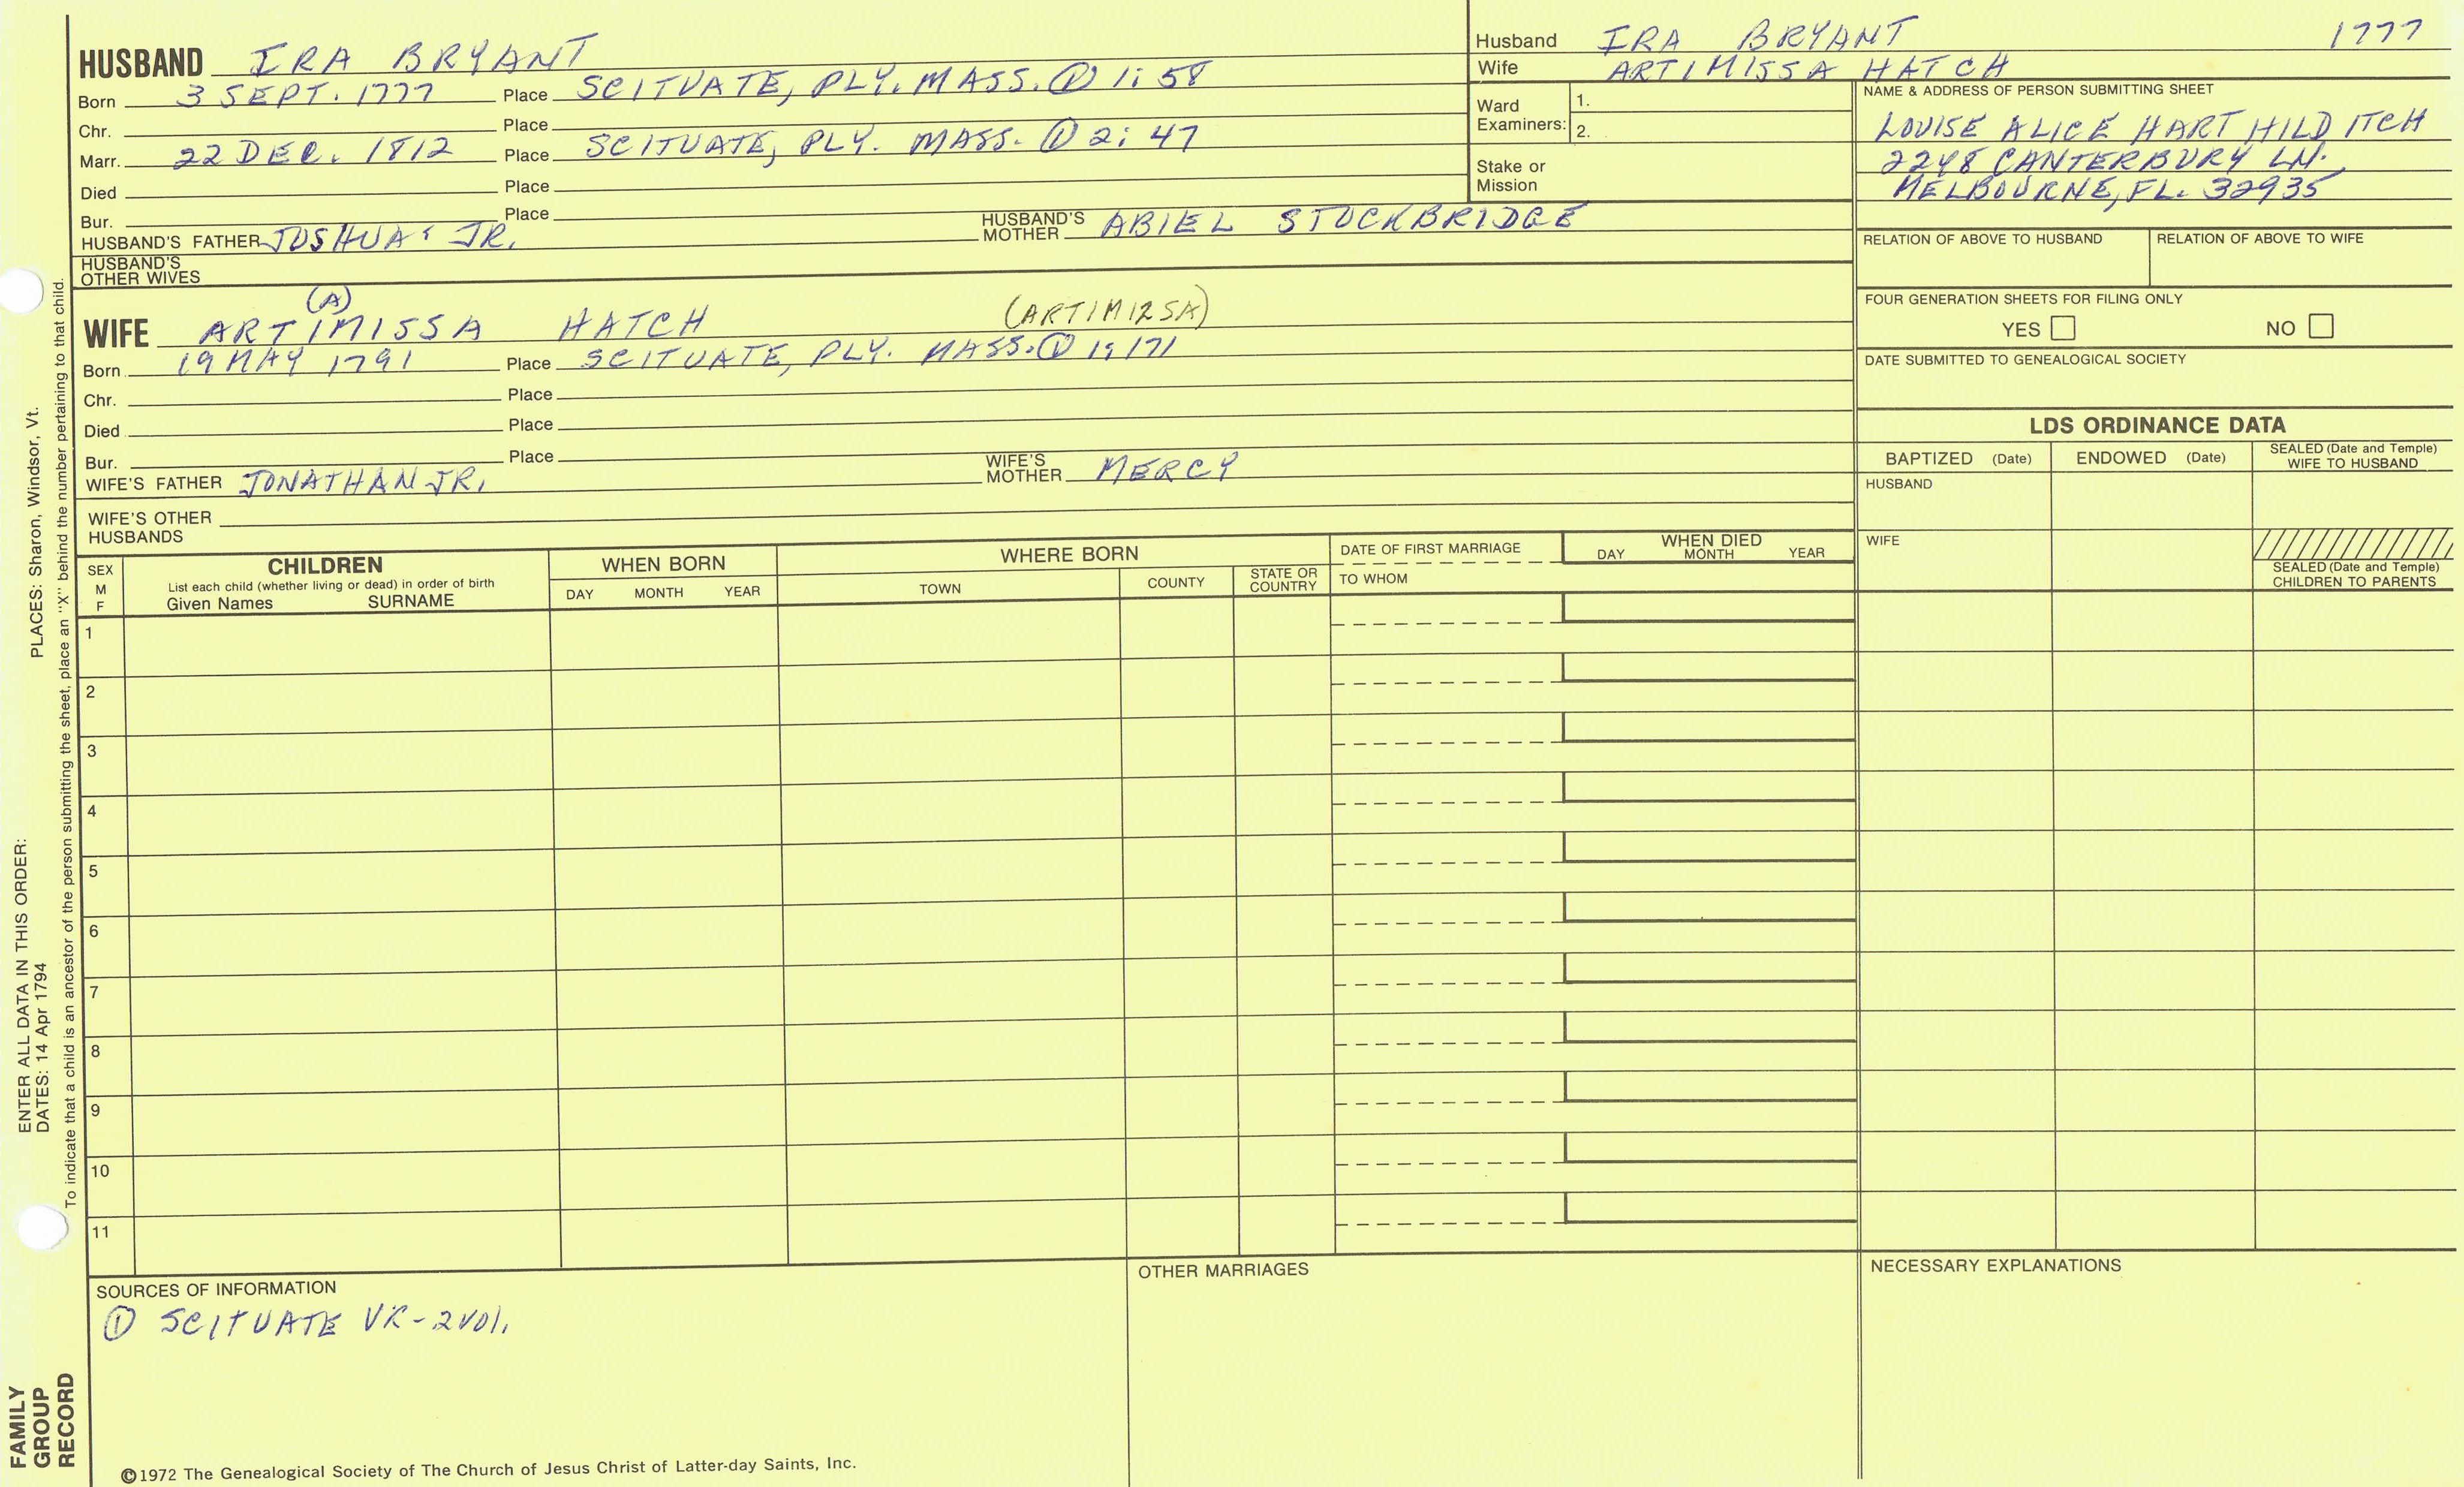 HUSBAND IRA BRYANT
Born 3 SEPT. 1777 Place SCITUATE, PLY. MASS. ① 1:58
Chr. Place
Marr. 22 DEC. 1812 Place SCITUATE, PLY. MASS. ① 2:47
Died Place
Bur. Place
HUSBAND'S FATHER JOSHUA JR. HUSBAND'S MOTHER ABIEL STOCKBRIDGE
HUSBAND'S OTHER WIVES
(A)
WIFE ARTIMISSA HATCH (ARTIMIZSA)
Born 19 MAY 1791 Place SCITUATE, PLY. MASS. ① 1:171
Chr. Place
Died Place
Bur. Place
WIFE'S FATHER JONATHAN JR. WIFE'S MOTHER MERCY
WIFE'S OTHER HUSBANDS
Husband IRA BRYANT 1777
Wife ARTIMISSA HATCH
Ward Examiners: 1.
2.
Stake or Mission
NAME & ADDRESS OF PERSON SUBMITTING SHEET
LOUISE ALICE HART HILD ITCH
2248 CANTERBURY LN.
MELBOURNE, FL. 32935
RELATION OF ABOVE TO HUSBAND RELATION OF ABOVE TO WIFE
FOUR GENERATION SHEETS FOR FILING ONLY
YES NO
DATE SUBMITTED TO GENEALOGICAL SOCIETY
LDS ORDINANCE DATA
BAPTIZED (Date) ENDOWED (Date) SEALED (Date and Temple) WIFE TO HUSBAND
HUSBAND
WIFE
SEALED (Date and Temple)
CHILDREN TO PARENTS
SEX M F
CHILDREN
List each child (whether living or dead) in order of birth
Given Names SURNAME
WHEN BORN
DAY MONTH YEAR
WHERE BORN
TOWN COUNTY STATE OR COUNTRY
DATE OF FIRST MARRIAGE
TO WHOM
WHEN DIED
DAY MONTH YEAR
1
2
3
4
5
6
7
8
9
10
11
SOURCES OF INFORMATION
① SCITUATE VR-2VOl.
OTHER MARRIAGES
NECESSARY EXPLANATIONS
©1972 The Genealogical Society of The Church of Jesus Christ of Latter-day Saints, Inc.
FAMILY
GROUP
RECORD
ENTER ALL DATA IN THIS ORDER:
DATES: 14 Apr 1794 PLACES: Sharon, Windsor, Vt.
To indicate that a child is an ancestor of the person submitting the sheet, place an "X" behind the number pertaining to that child.